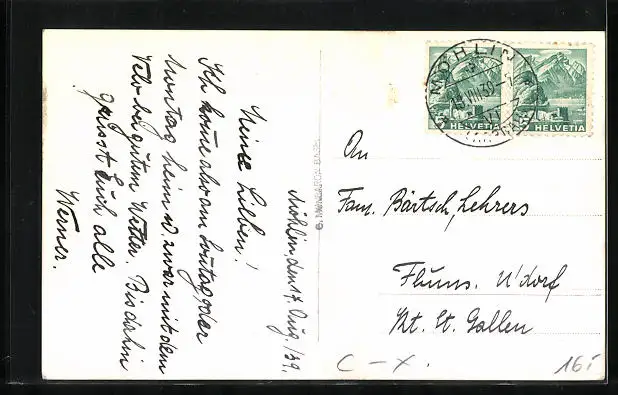 Möhlin, den 17. Aug. 39.
Meine Lieben!
Ich komme also am Sonntag oder
Montag heim u. zwar mit dem
Velo bei gutem Wetter. Bis dahin
grüsst Euch alle
Werner.
MÖHLIN
HELVETIA
HELVETIA
An
Fam. Bärtsch, Lehrers
Flums. U'dorf
Kt. St. Gallen
C – X.
16.-